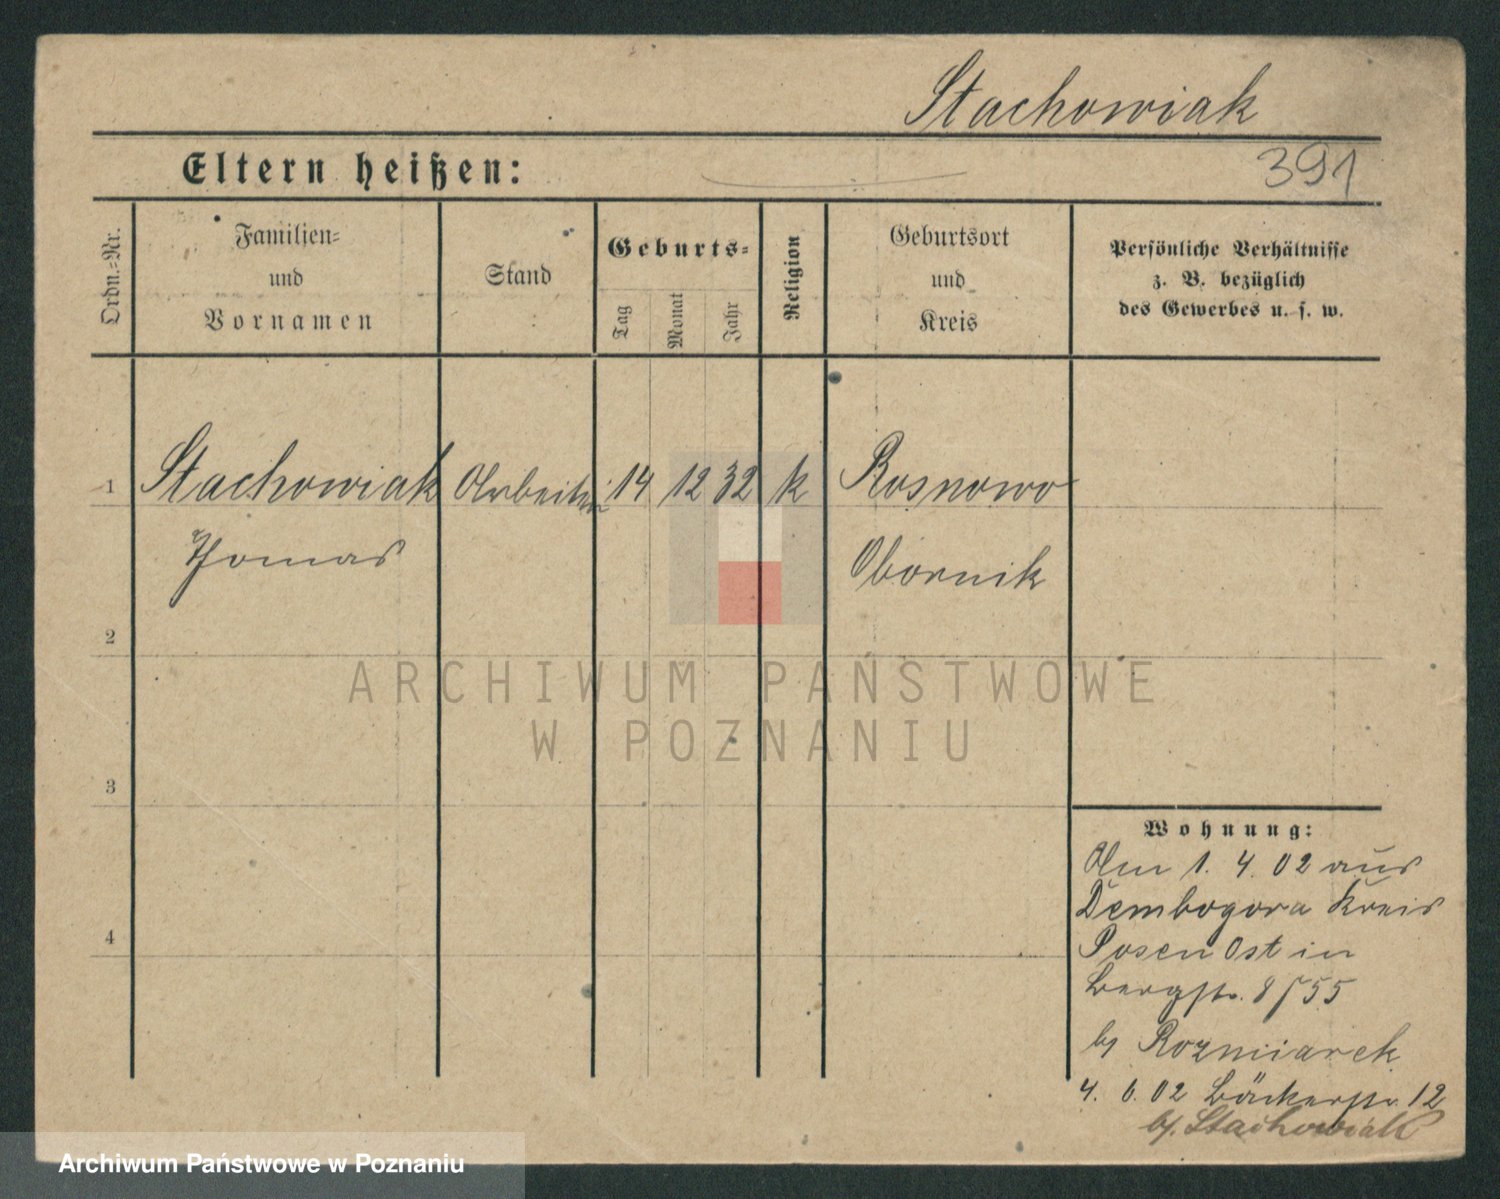 Stachowiak
391
Eltern heißen:
Ordn.=Nr.
Familien=
und
Vornamen
Stand
Geburts=
Tag
Monat
Jahr
Religion
Geburtsort
und
Kreis
Persönliche Verhältnisse
z. B. bezüglich
des Gewerbes u. s. w.
1
Stachowiak
Thomas
Arbeiter
14
12
32
k
Rosnowo
Obornik
2
3
4
Wohnung:
Am 1. 4. 02 aus
Dembogora Kreis
Posen Ost in
Bergstr. 8/55
bj Rozmiarek
4. 6. 02 Bäckerstr. 12
bj. Stachowiak
ARCHIWUM PAŃSTWOWE
W POZNANIU
Archiwum Państwowe w Poznaniu